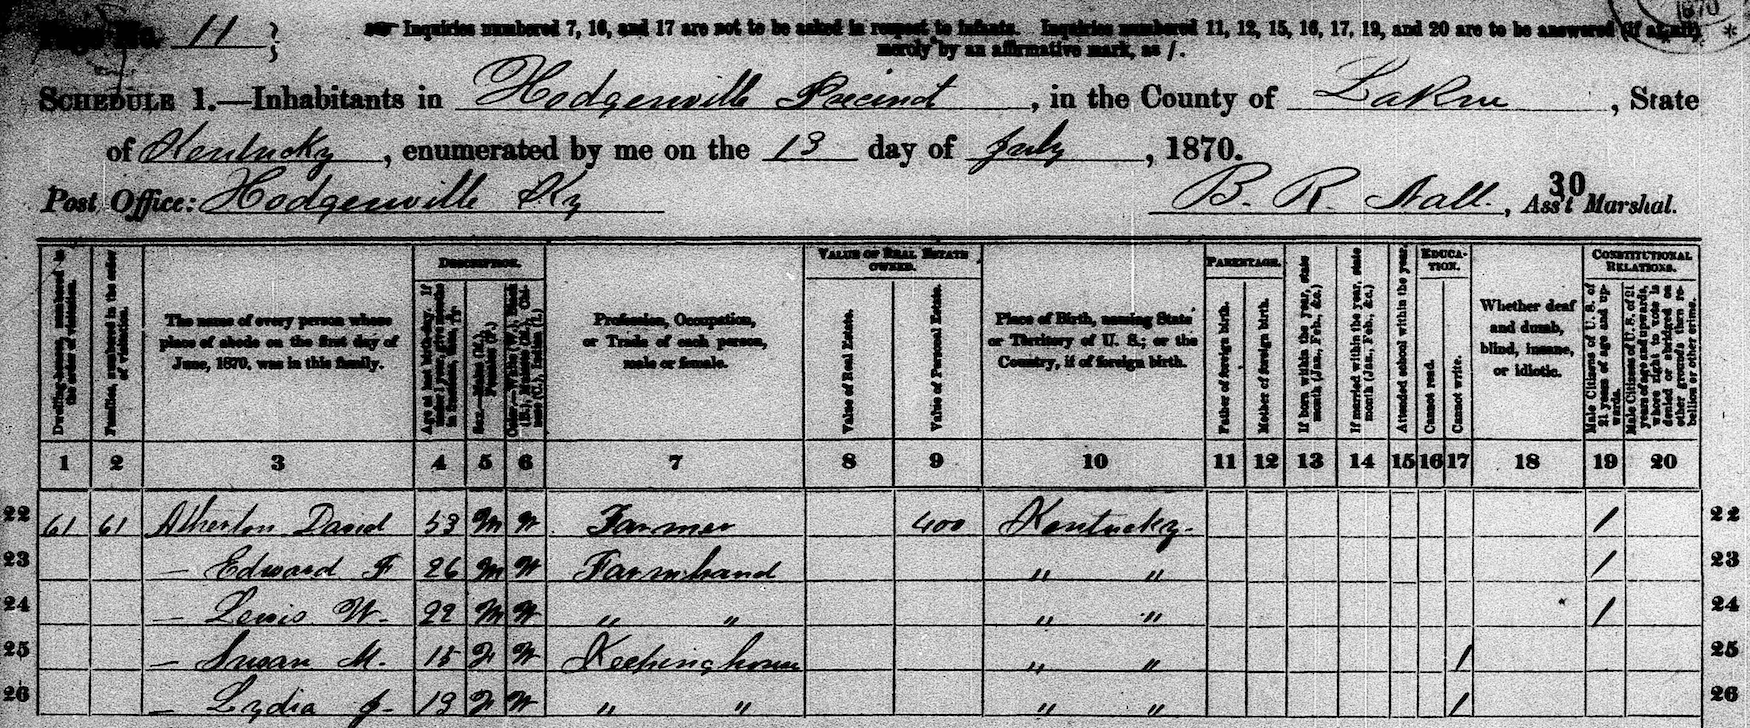 Page No. 11
1870
☞ Inquiries numbered 7, 16, and 17 are not to be asked in respect to infants. Inquiries numbered 11, 12, 15, 16, 17, 19, and 20 are to be answered (if at all) *
merely by an affirmative mark, as /.
SCHEDULE 1.—Inhabitants in Hodgenville Precinct, in the County of LaRue, State
of Kentucky, enumerated by me on the 13 day of July, 1870.
30
Post Office: Hodgenville Ky B. R. Nall., Ass't Marshal.
Dwelling-houses, numbered in the order of visitation.
Families, numbered in the order of visitation.
The name of every person whose place of abode on the first day of June, 1870, was in this family.
DESCRIPTION.
Age at last birth-day. If under 1 year, give months in fractions, thus, 3/12
Sex.—Males (M.), Females (F.)
Color.—White (W.), Black (B.), Mulatto (M.), Chinese (C.), Indian (I.)
Profession, Occupation, or Trade of each person, male or female.
VALUE OF REAL ESTATE OWNED.
Value of Real Estate.
Value of Personal Estate.
Place of Birth, naming State or Territory of U. S.; or the Country, if of foreign birth.
PARENTAGE.
Father of foreign birth.
Mother of foreign birth.
If born within the year, state month (Jan., Feb., &c.)
If married within the year, state month (Jan., Feb., &c.)
Attended school within the year.
EDUCATION.
Cannot read.
Cannot write.
Whether deaf and dumb, blind, insane, or idiotic.
CONSTITUTIONAL RELATIONS.
Male Citizens of U. S. of 21 years of age and upwards.
Male Citizens of U. S. of 21 years of age and upwards, whose right to vote is denied or abridged on other grounds than rebellion or other crime.
1 2 3 4 5 6 7 8 9 10 11 12 13 14 15 16 17 18 19 20
22 61 61 Atherton David 53 M W Farmer 400 Kentucky / 22
23 — Edward F 26 M W Farmhand " " / 23
24 — Lewis W. 22 M W " " " " / 24
25 — Susan M. 15 F W Keeping house " " / 25
26 — Lydia J. 13 F W " " " " / 26